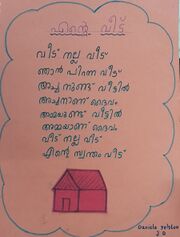 എന്റെ വീട്
വീട് നല്ല വീട്
ഞാൻ പിറന്ന വീട്
അച്ഛനുണ്ട് വീട്ടിൽ
അച്ഛനാണ് ദൈവം
അമ്മയുണ്ട് വീട്ടിൽ
അമ്മയാണ് ദൈവം
വീട് നല്ല വീട്
എന്റെ സ്വന്തം വീട്
Daniela Jelston